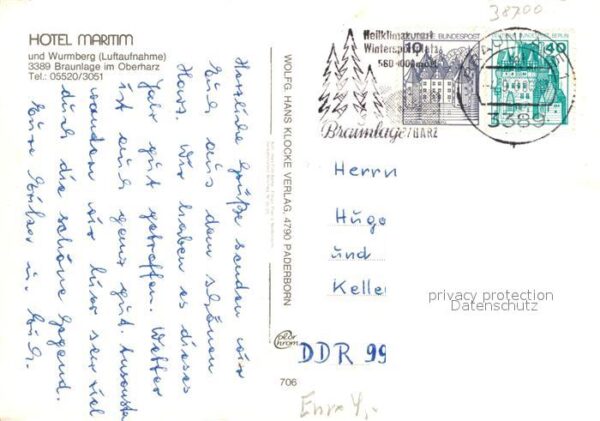 38700
HOTEL MARITIM
und Wurmberg (Luftaufnahme)
3389 Braunlage im Oberharz
Tel.: 05520/3051
Herzliche Grüße senden wir
Euch aus dem schönen
Harz. Wir haben es dieses
Jahr gut getroffen. Wetter
ist auch ganz gut. Ansonsten
wandern wir hier sehr viel
durch die schöne Gegend.
Eure
WOLFG. HANS KLOCKE VERLAG, 4790 PADERBORN
color
chrom
706
Heilklimakurort
Wintersportplatz
560-1000m
Braunlage/HARZ
10
DEUTSCHE BUNDESPOST
40
DEUTSCHE BUNDESPOST BERLIN
BRAUNLAGE 1
3389
Herrn
Hugo
und
Keller
DDR 99
privacy protection
Datenschutz